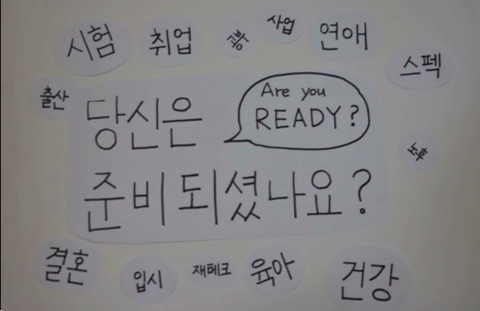 시험 취업 공부 사업 연애
스펙
출산
Are you
READY?
당신은
준비되셨나요?
노후
결혼 입시 재테크 육아 건강